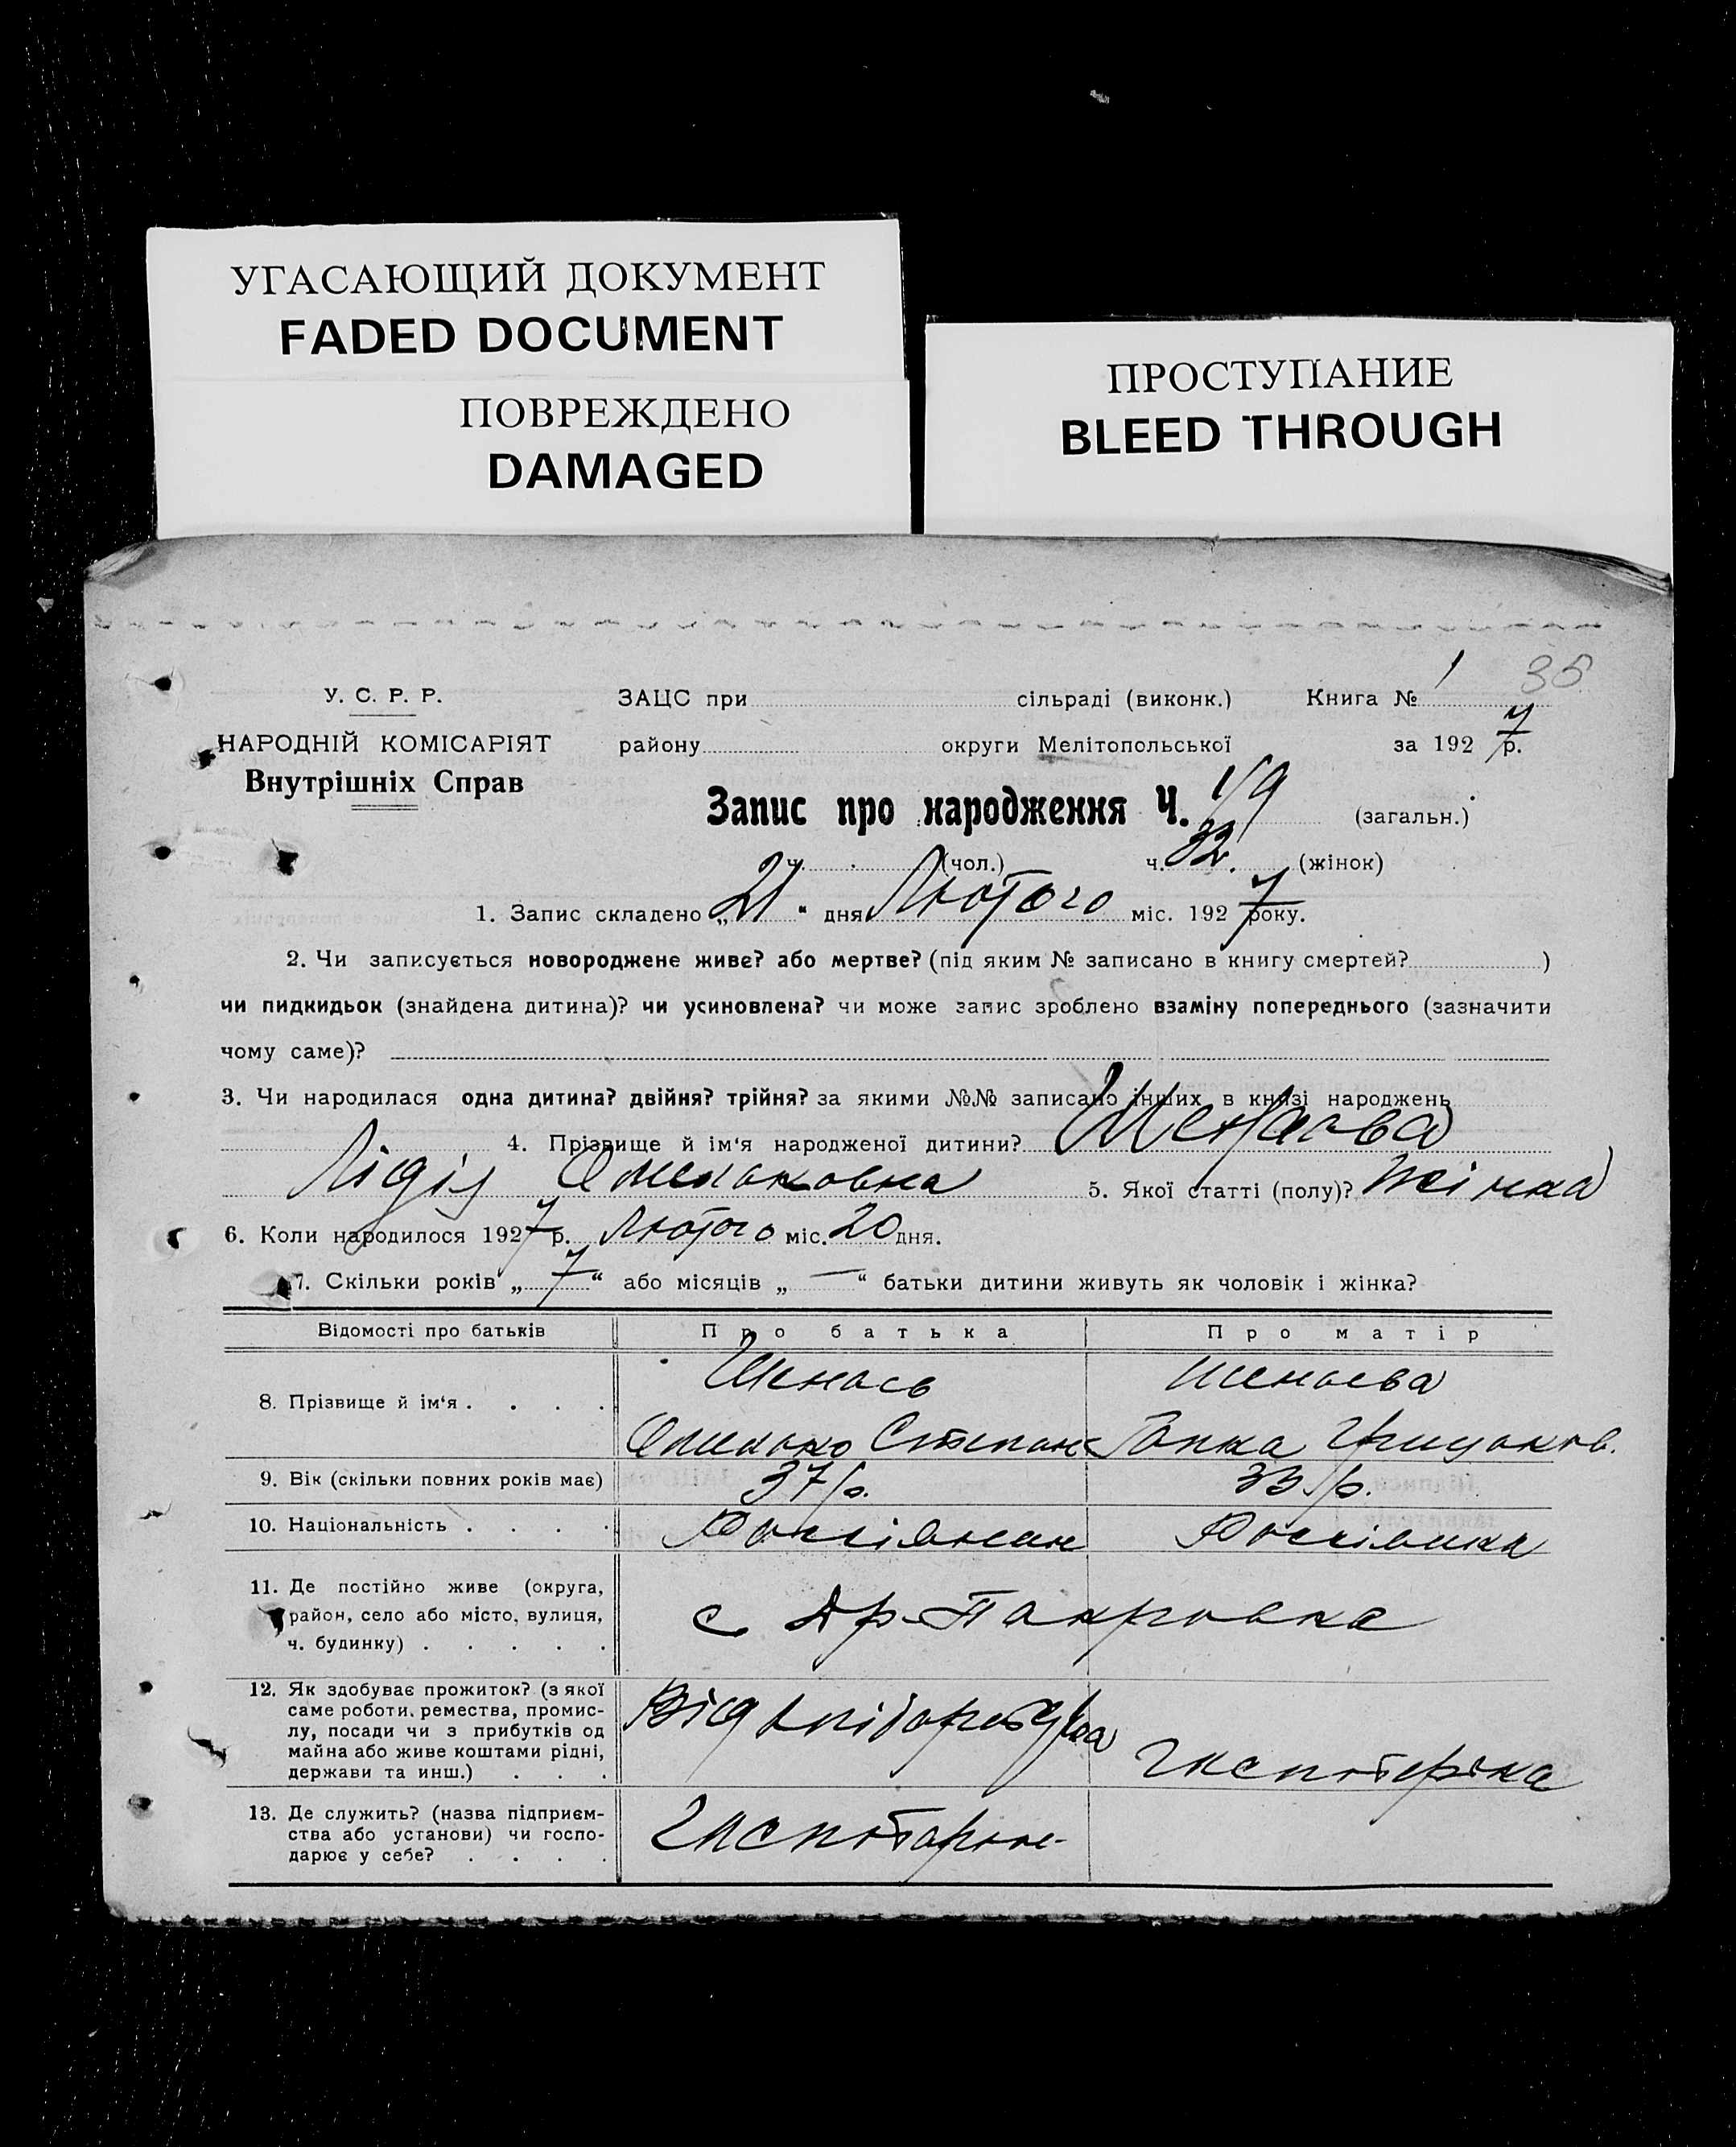 УГАСАЮЩИЙ ДОКУМЕНТ
FADED DOCUMENT
ПОВРЕЖДЕНО
DAMAGED
ПРОСТУПАНИЕ
BLEED THROUGH
У. С. Р. Р.
НАРОДНІЙ КОМІСАРІЯТ
Внутрішніх Справ
ЗАЦС при сільраді (виконк.) Книга № 1 35
району округи Мелітопольської за 1927 р.
Запис про народження Ч. (загальн.)
ч. (чол.) ч. 32. (жінок)
1. Запис складено „21“ дня Лютого міс. 1927 року.
2. Чи записується новороджене живе? або мертве? (під яким № записано в книгу смертей? )
чи пидкидьок (знайдена дитина)? чи усиновлена? чи може запис зроблено взаміну попереднього (зазначити
чому саме)?
3. Чи народилася одна дитина? двійня? трійня? за якими №№ записано інших в книзі народжень
4. Прізвище й ім‘я народженої дитини?
Лідія 5. Якої статті (полу)? Жінка
6. Коли народилося 1927 р. Лютого міс. 20 дня.
7. Скільки років „7“ або місяців „—“ батьки дитини живуть як чоловік і жінка?
Відомості про батьків Про батька Про матір
8. Прізвище й ім‘я . . . .
9. Вік (скільки повних років має) 37 р. 33 р.
10. Національність . . . .
11. Де постійно живе (округа,
район, село або місто, вулиця,
ч. будинку) . . . . .
с
12. Як здобуває прожиток? (з якої
саме роботи, ремества, промис-
лу, посади чи з прибутків од
майна або живе коштами рідні,
держави та инш.) . . .
Від
13. Де служить? (назва підприєм-
ства або установи) чи госпо-
дарює у себе? . . . .